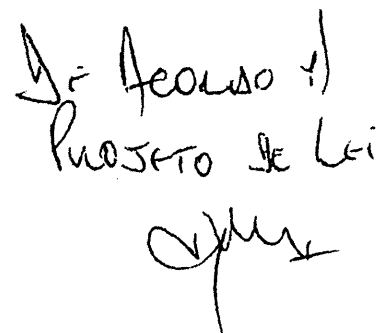 De Acordo
Projeto de Lei